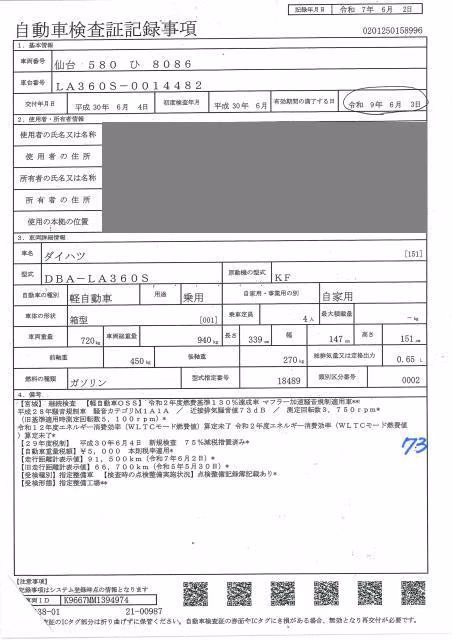 記録年月日 令和 7年 6月 2日
自動車検査証記録事項
0201250158996
1. 基本情報
車両番号 仙台 580 ひ 8086
車台番号 LA360S-0014482
交付年月日 平成 30年 6月 4日 初度検査年月 平成 30年 6月 有効期間の満了する日 令和 9年 6月 3日
2. 使用者・所有者情報
使用者の氏名又は名称
使用者の住所
所有者の氏名又は名称
所有者の住所
使用の本拠の位置
3. 車両詳細情報
車名 ダイハツ [151]
型式 DBA-LA360S 原動機の型式 KF
自動車の種別 軽自動車 用途 乗用 自家用・事業用の別 自家用
車体の形状 箱型 [001] 乗車定員 4人 最大積載量 -kg
車両重量 720kg 車両総重量 940kg 長さ 339cm 幅 147cm 高さ 151cm
前軸重 450kg 後軸重 270kg 総排気量又は定格出力 0.65 L
燃料の種類 ガソリン 型式指定番号 18489 類別区分番号 0002
4. 備考
【宮城】 継続検査 【軽自動車OSS】 令和2年度燃費基準130%達成車 マフラー加速騒音規制適用車**
平成28年騒音規制車 騒音カテゴリM1A1A / 近接排気騒音値73dB / 測定回転数3,750rpm*
(旧基準適用時測定回転数5,100rpm)*
令和12年度エネルギー消費効率(WLTCモード燃費値)算定未了 令和2年度エネルギー消費効率(WLTCモード燃費値
)算定未了*
【29年度税制】 平成30年6月4日 新規検査 75%減税措置済み*
【自動車重量税額】¥5,000 本則税率適用*
【走行距離計表示値】91,500km(令和7年6月2日)*
【旧走行距離計表示値】66,700km(令和5年5月30日)*
【受検種別】指定整備車 【検査時の点検整備実施状況】点検整備記録簿記載あり*
【受検形態】指定整備工場**
73
【注意事項】
記載事項はシステム登録時点の情報となります
車両ID K9667MM1394974
38-01 21-00987
証のICタグ部分は折り曲げずに保管ください。自動車検査証の券面やICタグにき損がある場合、無効となり再交付が必要です。